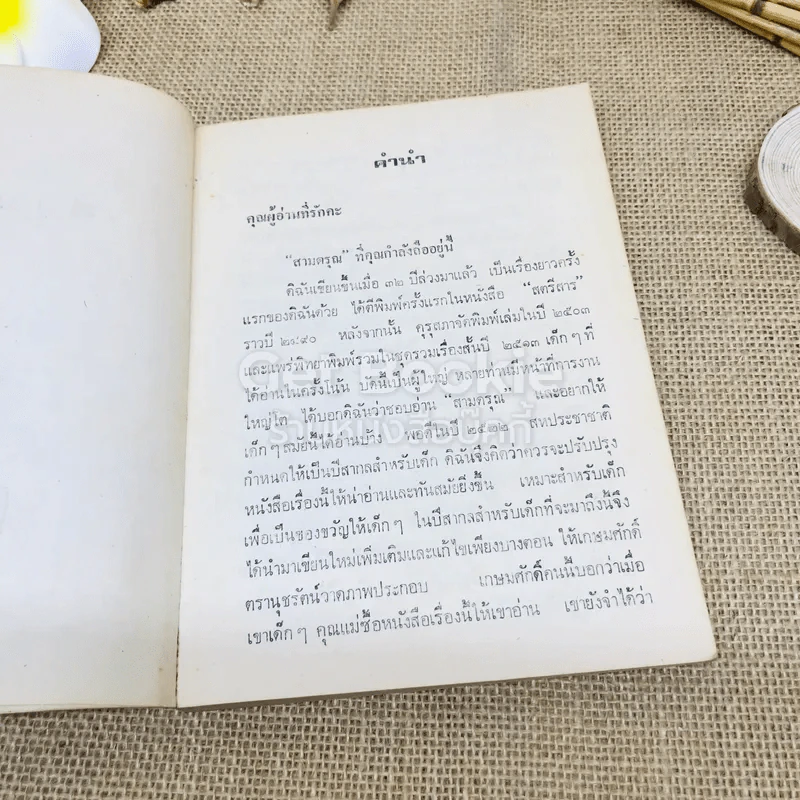 คำนำ
คุณผู้อ่านที่รักคะ
“สามดรุณ” ที่คุณกำลังถืออยู่นี้
ดิฉันเขียนขึ้นเมื่อ ๓๒ ปีล่วงมาแล้ว เป็นเรื่องยาวครั้ง
แรกของดิฉันด้วย ได้ตีพิมพ์ครั้งแรกในหนังสือ “สตรีสาร”
ราวปี ๒๔๙๐ หลังจากนั้น คุรุสภาจัดพิมพ์เล่มในปี ๒๕๐๓
และแพร่พิทยาพิมพ์รวมในชุดรวมเรื่องสั้นปี ๒๕๑๓ เด็กๆ ที่
ได้อ่านในครั้งโน้น บัดนี้เป็นผู้ใหญ่ หลายท่านมีหน้าที่การงาน
ใหญ่โต ได้บอกดิฉันว่าชอบอ่าน “สามดรุณ” และอยากให้
เด็กๆ สมัยนี้ได้อ่านบ้าง พอดีในปี ๒๕๒๒ สหประชาชาติ
กำหนดให้เป็นปีสากลสำหรับเด็ก ดิฉันจึงคิดว่าควรจะปรับปรุง
หนังสือเรื่องนี้ให้น่าอ่านและทันสมัยยิ่งขึ้น เหมาะสำหรับเด็ก
เพื่อเป็นของขวัญให้เด็กๆ ในปีสากลสำหรับเด็กที่จะมาถึงนี้จึง
ได้นำมาเขียนใหม่เพิ่มเติมและแก้ไขเพียงบางตอน ให้เกษมศักดิ์
ตรานุชรัตน์วาดภาพประกอบ เกษมศักดิ์คนนี้บอกว่าเมื่อ
เขาเด็กๆ คุณแม่ซื้อหนังสือเรื่องนี้ให้เขาอ่าน เขายังจำได้ว่า
Get Bookie
ร้านหนังสือบุ๊คกี้